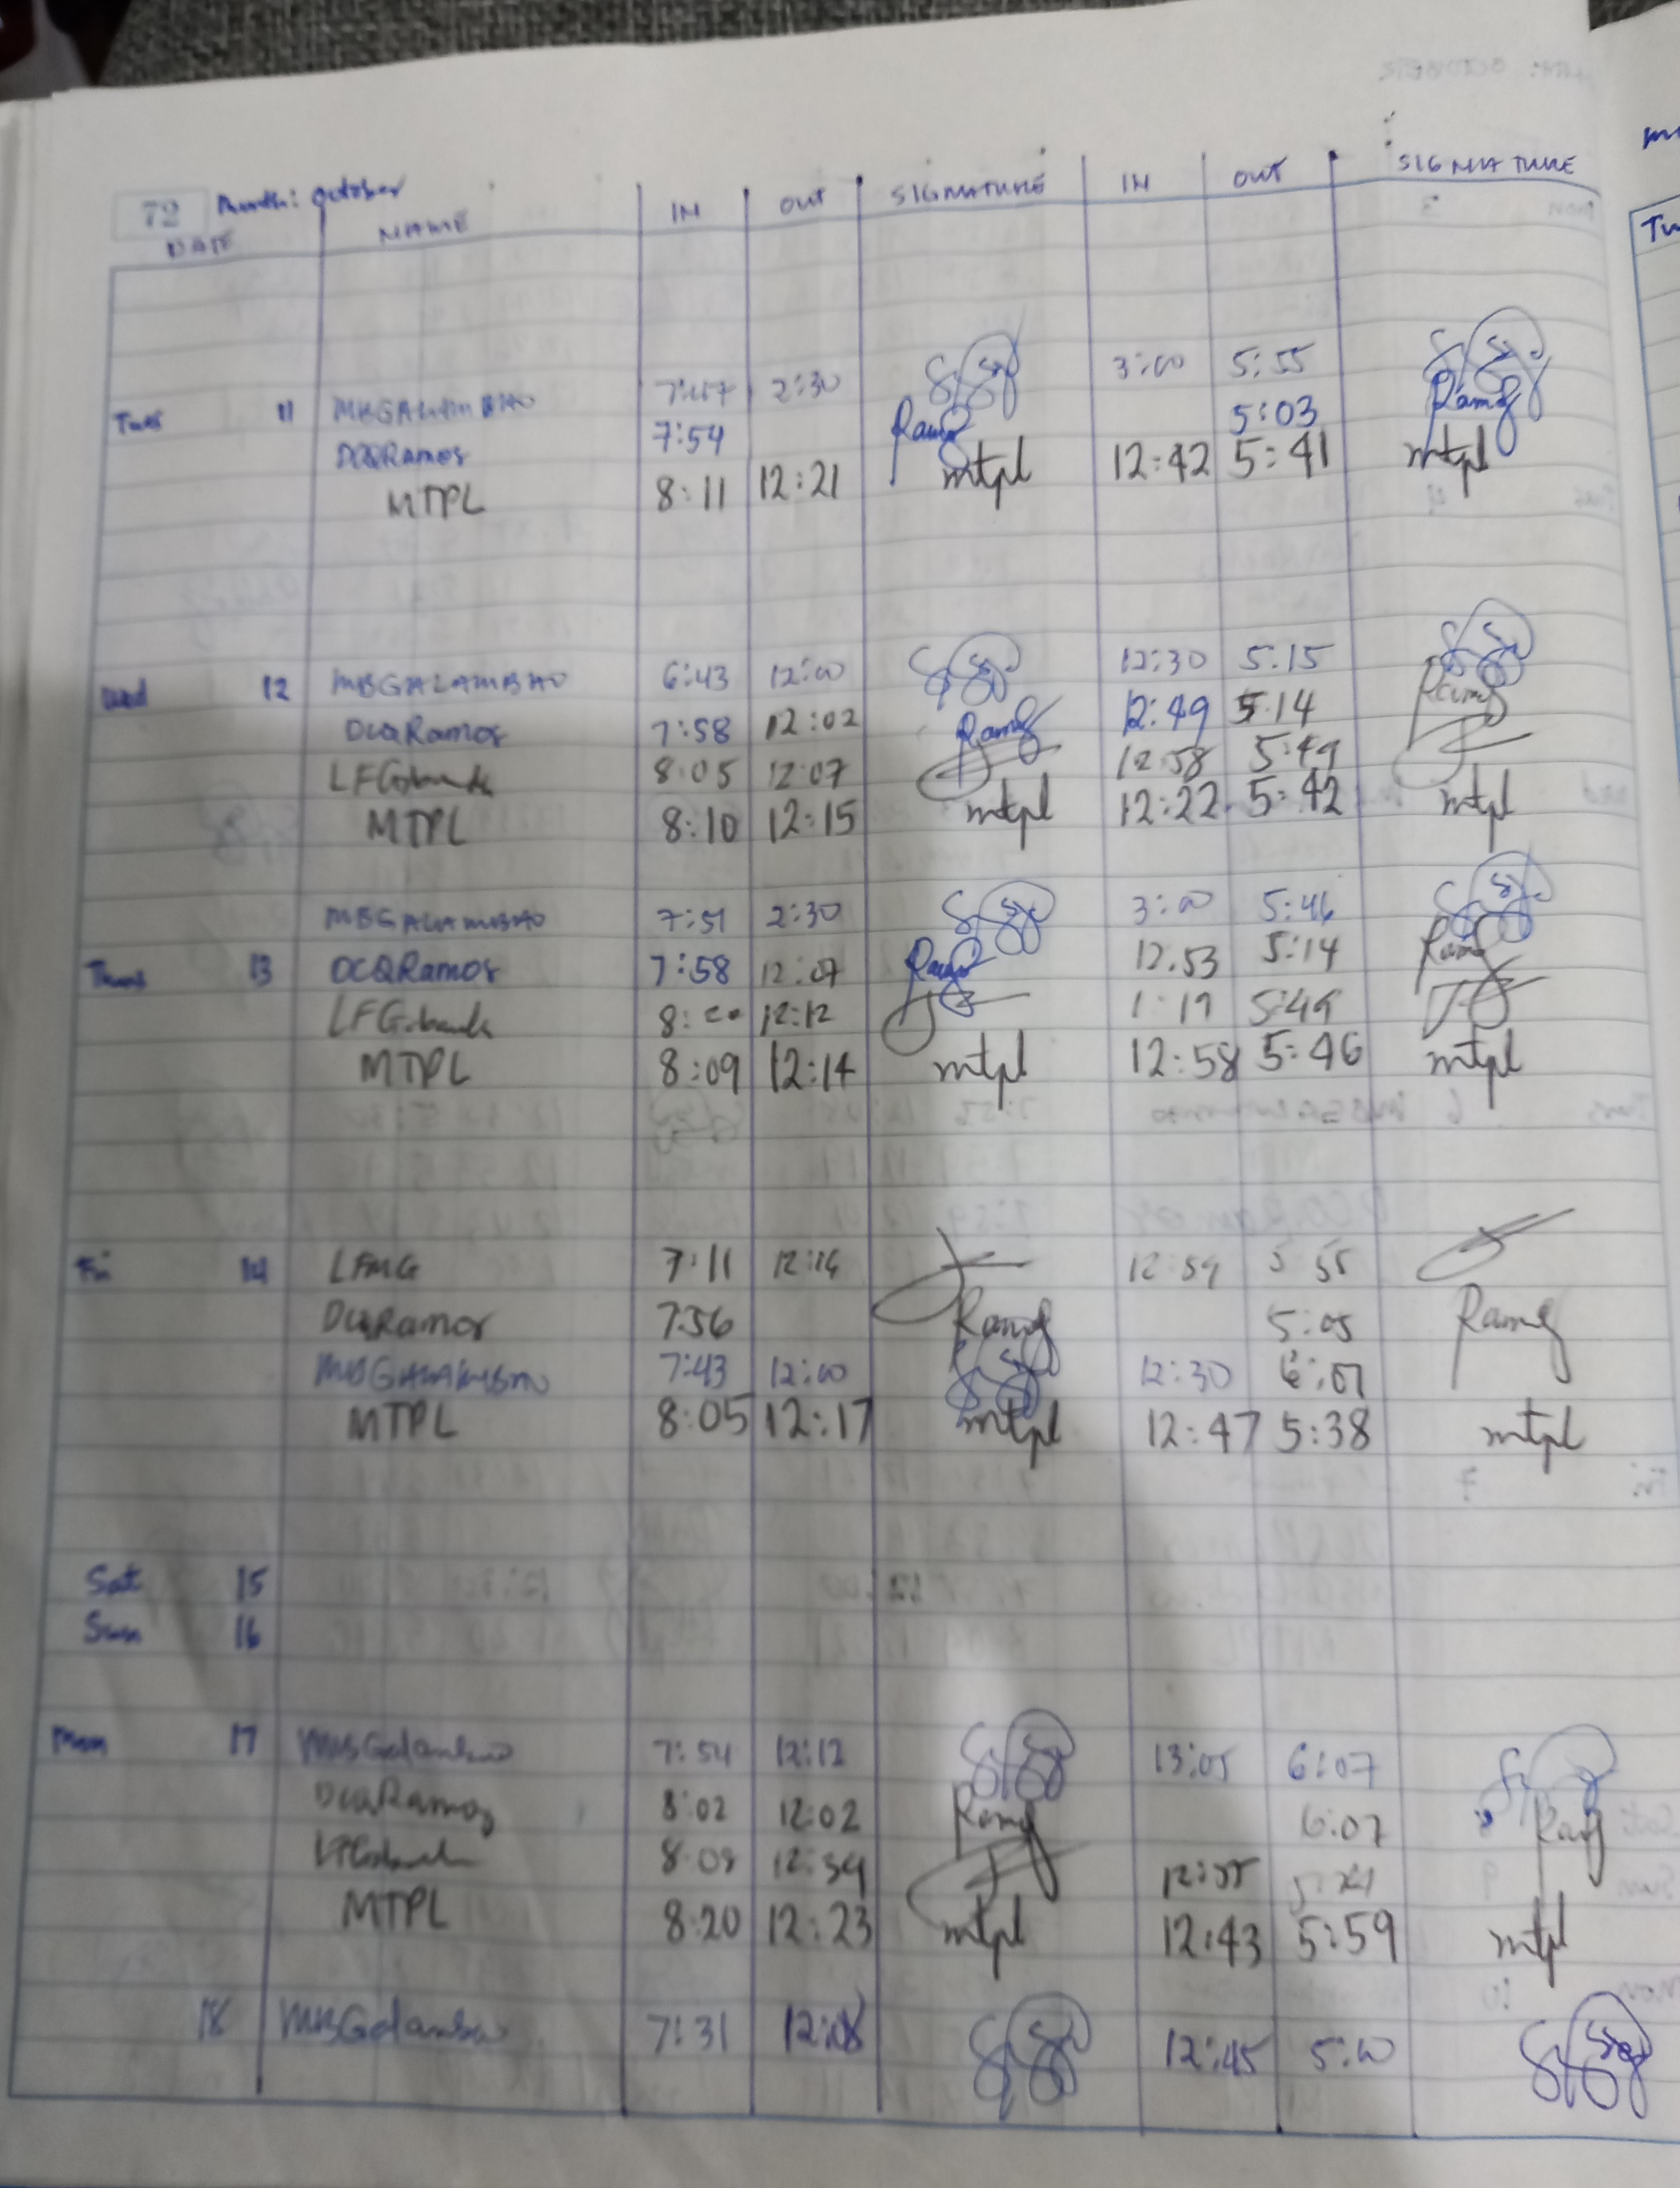 72 Month: October
DATE NAME IN OUT SIGNATURE IN OUT SIGNATURE
Tues 11 MBGALAMBAO 7:47 2:30 3:00 5:55
DCQRamos 7:54 5:03
MTPL 8:11 12:21 mtpl 12:42 5:41 mtpl
Wed 12 MBGALAMBAO 6:43 12:00 12:30 5:15
DCQRamos 7:58 12:02 12:49 5:14
8:05 12:07 12:58 5:49
MTPL 8:10 12:15 mtpl 12:22 5:42 mtpl
MBGALAMBAO 7:51 2:30 3:00 5:46
Thurs 13 DCQRamos 7:58 12:07 12:53 5:14
12:12 1:19 5:49
MTPL 8:09 12:14 mtpl 12:58 5:46 mtpl
Fri 14 LFMG 7:11 12:16 12:59 5:55
DCQRamos 7:56 5:05
MBGALAMBAO 7:43 12:00 12:30 6:07
MTPL 8:05 12:17 mtpl 12:47 5:38 mtpl
Sat 15
Sun 16
Mon 17 MBGalambao 7:54 12:12 13:05 6:07
DCQRamos 8:02 12:02 6:07
8:09 12:39 12:55
MTPL 8:20 12:23 mtpl 12:43 5:59 mtpl
18 MBGalambao 7:31 12:08 12:45 5:00